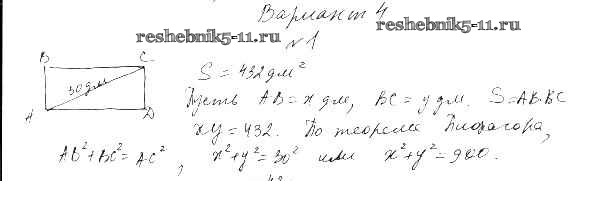 Вариант 4
reshebnik5-11.ru
reshebnik5-11.ru
№1
B C
30 дм
A D
S = 432 дм²
Пусть AB = x дм, BC = y дм. S = AB·BC
xy = 432. По теореме Пифагора,
AB² + BC² = AC², x² + y² = 30² или x² + y² = 900.